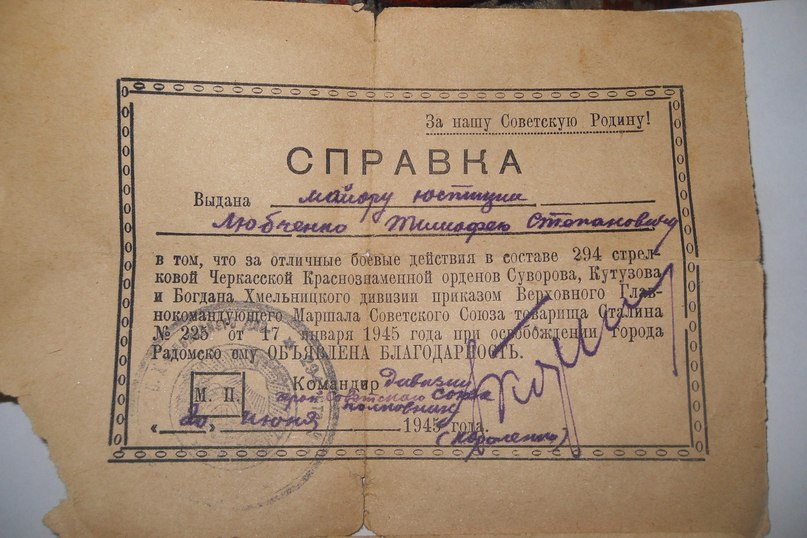 За нашу Советскую Родину!
СПРАВКА
Выдана майору юстиции
Любченко Тимофею Степановичу
в том, что за отличные боевые действия в составе 294 стрел-
ковой Черкасской Краснознаменной орденов Суворова, Кутузова
и Богдана Хмельницкого дивизии приказом Верховного Глав-
нокомандующего Маршала Советского Союза товарища Сталина
№ 225 от 17 января 1945 года при освобождении города
Радомско ему ОБЪЯВЛЕНА БЛАГОДАРНОСТЬ.
Командир дивизии
Советского Союза
М. П. полковник
«20» июня 1945 года.
(Короленко)